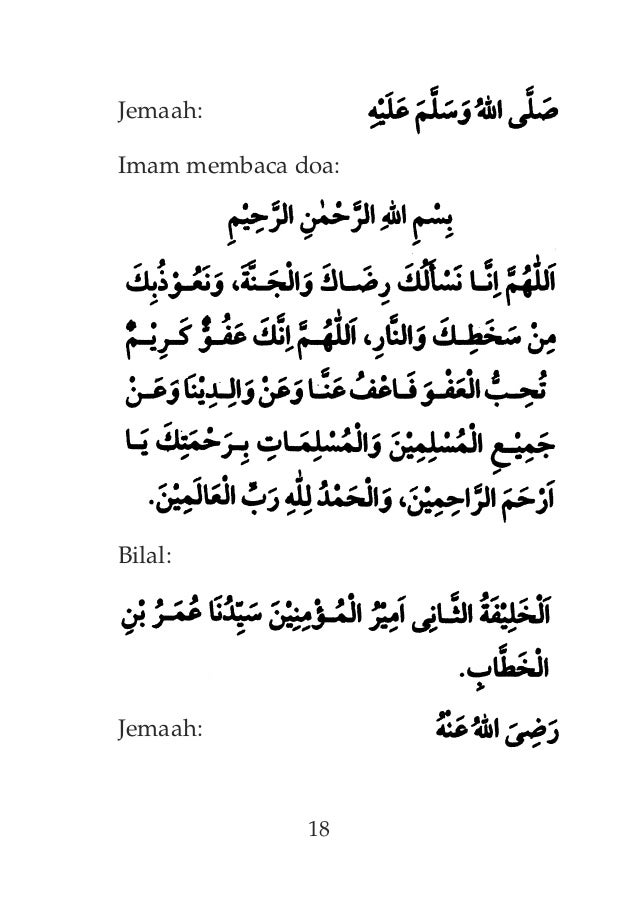 Jemaah: صَلَّى اللهُ وَسَلَّمَ عَلَيْهِ
Imam membaca doa:
بِسْمِ اللهِ الرَّحْمٰنِ الرَّحِيْمِ
اَللّٰهُمَّ اِنَّا نَسْأَلُكَ رِضَاكَ وَالْجَنَّةَ، وَنَعُوْذُبِكَ
مِنْ سَخَطِكَ وَالنَّارِ، اَللّٰهُمَّ اِنَّكَ عَفُوٌّ كَرِيْمٌ
تُحِبُّ الْعَفْوَ فَاعْفُ عَنَّا وَعَنْ وَالِدِيْنَا وَعَنْ
جَمِيْعِ الْمُسْلِمِيْنَ وَالْمُسْلِمَاتِ بِرَحْمَتِكَ يَا
اَرْحَمَ الرَّاحِمِيْنَ، وَالْحَمْدُ لِلّٰهِ رَبِّ الْعَالَمِيْنَ.
Bilal:
اَلْخَلِيْفَةُ الثَّانِى اَمِيْرُ الْمُؤْمِنِيْنَ سَيِّدُنَا عُمَرُ بْنِ
الْخَطَّابِ.
Jemaah: رَضِىَ اللهُ عَنْهُ
18